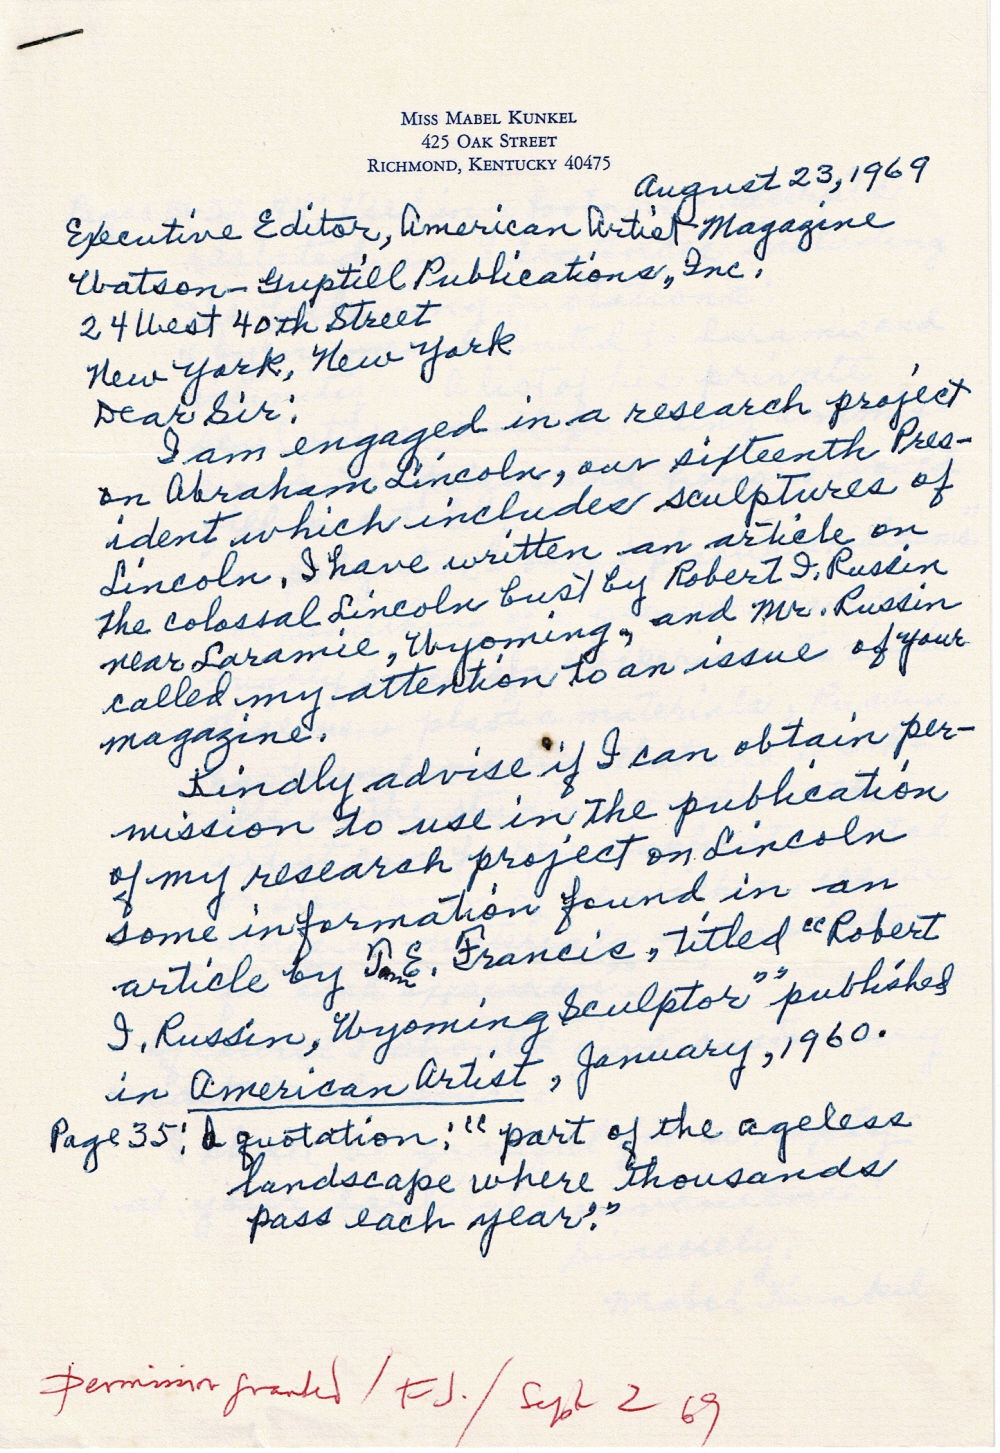 MISS MABEL KUNKEL
425 OAK STREET
RICHMOND, KENTUCKY 40475
August 23, 1969
Executive Editor, American Artist Magazine
Watson-Guptill Publications, Inc.
24 West 40th Street
New York, New York
Dear Sir:
I am engaged in a research project
on Abraham Lincoln, our sixteenth Pres-
ident which includes sculptures of
Lincoln. I have written an article on
the colossal Lincoln bust by Robert I. Russin
near Laramie, Wyoming, and Mr. Russin
called my attention to an issue of your
magazine.
Kindly advise if I can obtain per-
mission to use in the publication
of my research project on Lincoln
some information found in an
article by E. Francis, titled "Robert
I. Russin, Wyoming Sculptor" published
in American Artist, January, 1960.
Page 35: A quotation: "part of the ageless
landscape where thousands
pass each year."
Permission granted / F.J. / Sept 2 69